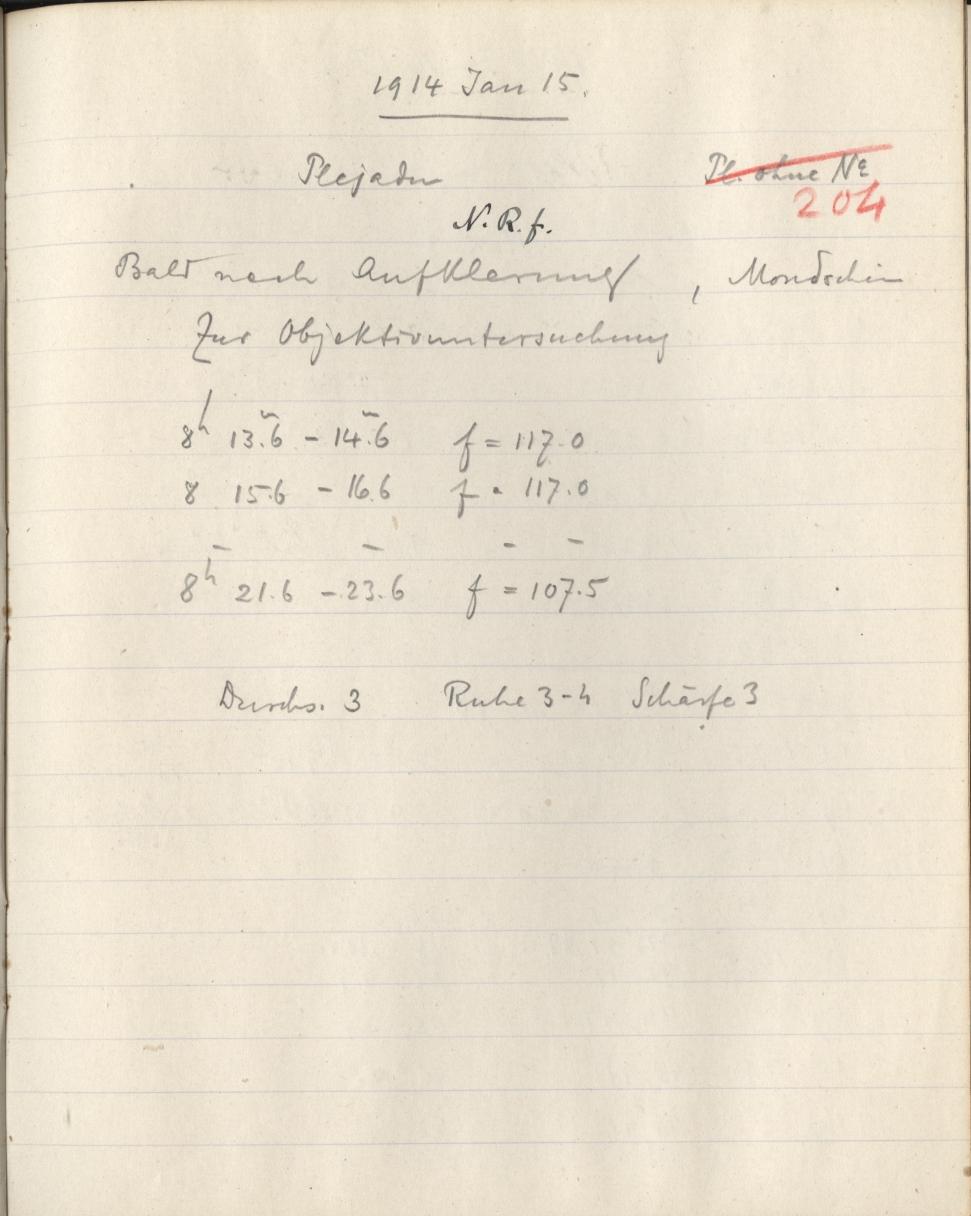 1914 Jan 15.
Plejaden Pl. ohne No
204
N. R. f.
Bald nach Aufklärung, Mondschein
Zur Objektivuntersuchung
8h 13.m6 - 14.m6 f = 117.0
8 15.6 - 16.6 f = 117.0
8h 21.6 - 23.6 f = 107.5
Durchs. 3 Ruhe 3-4 Schärfe 3